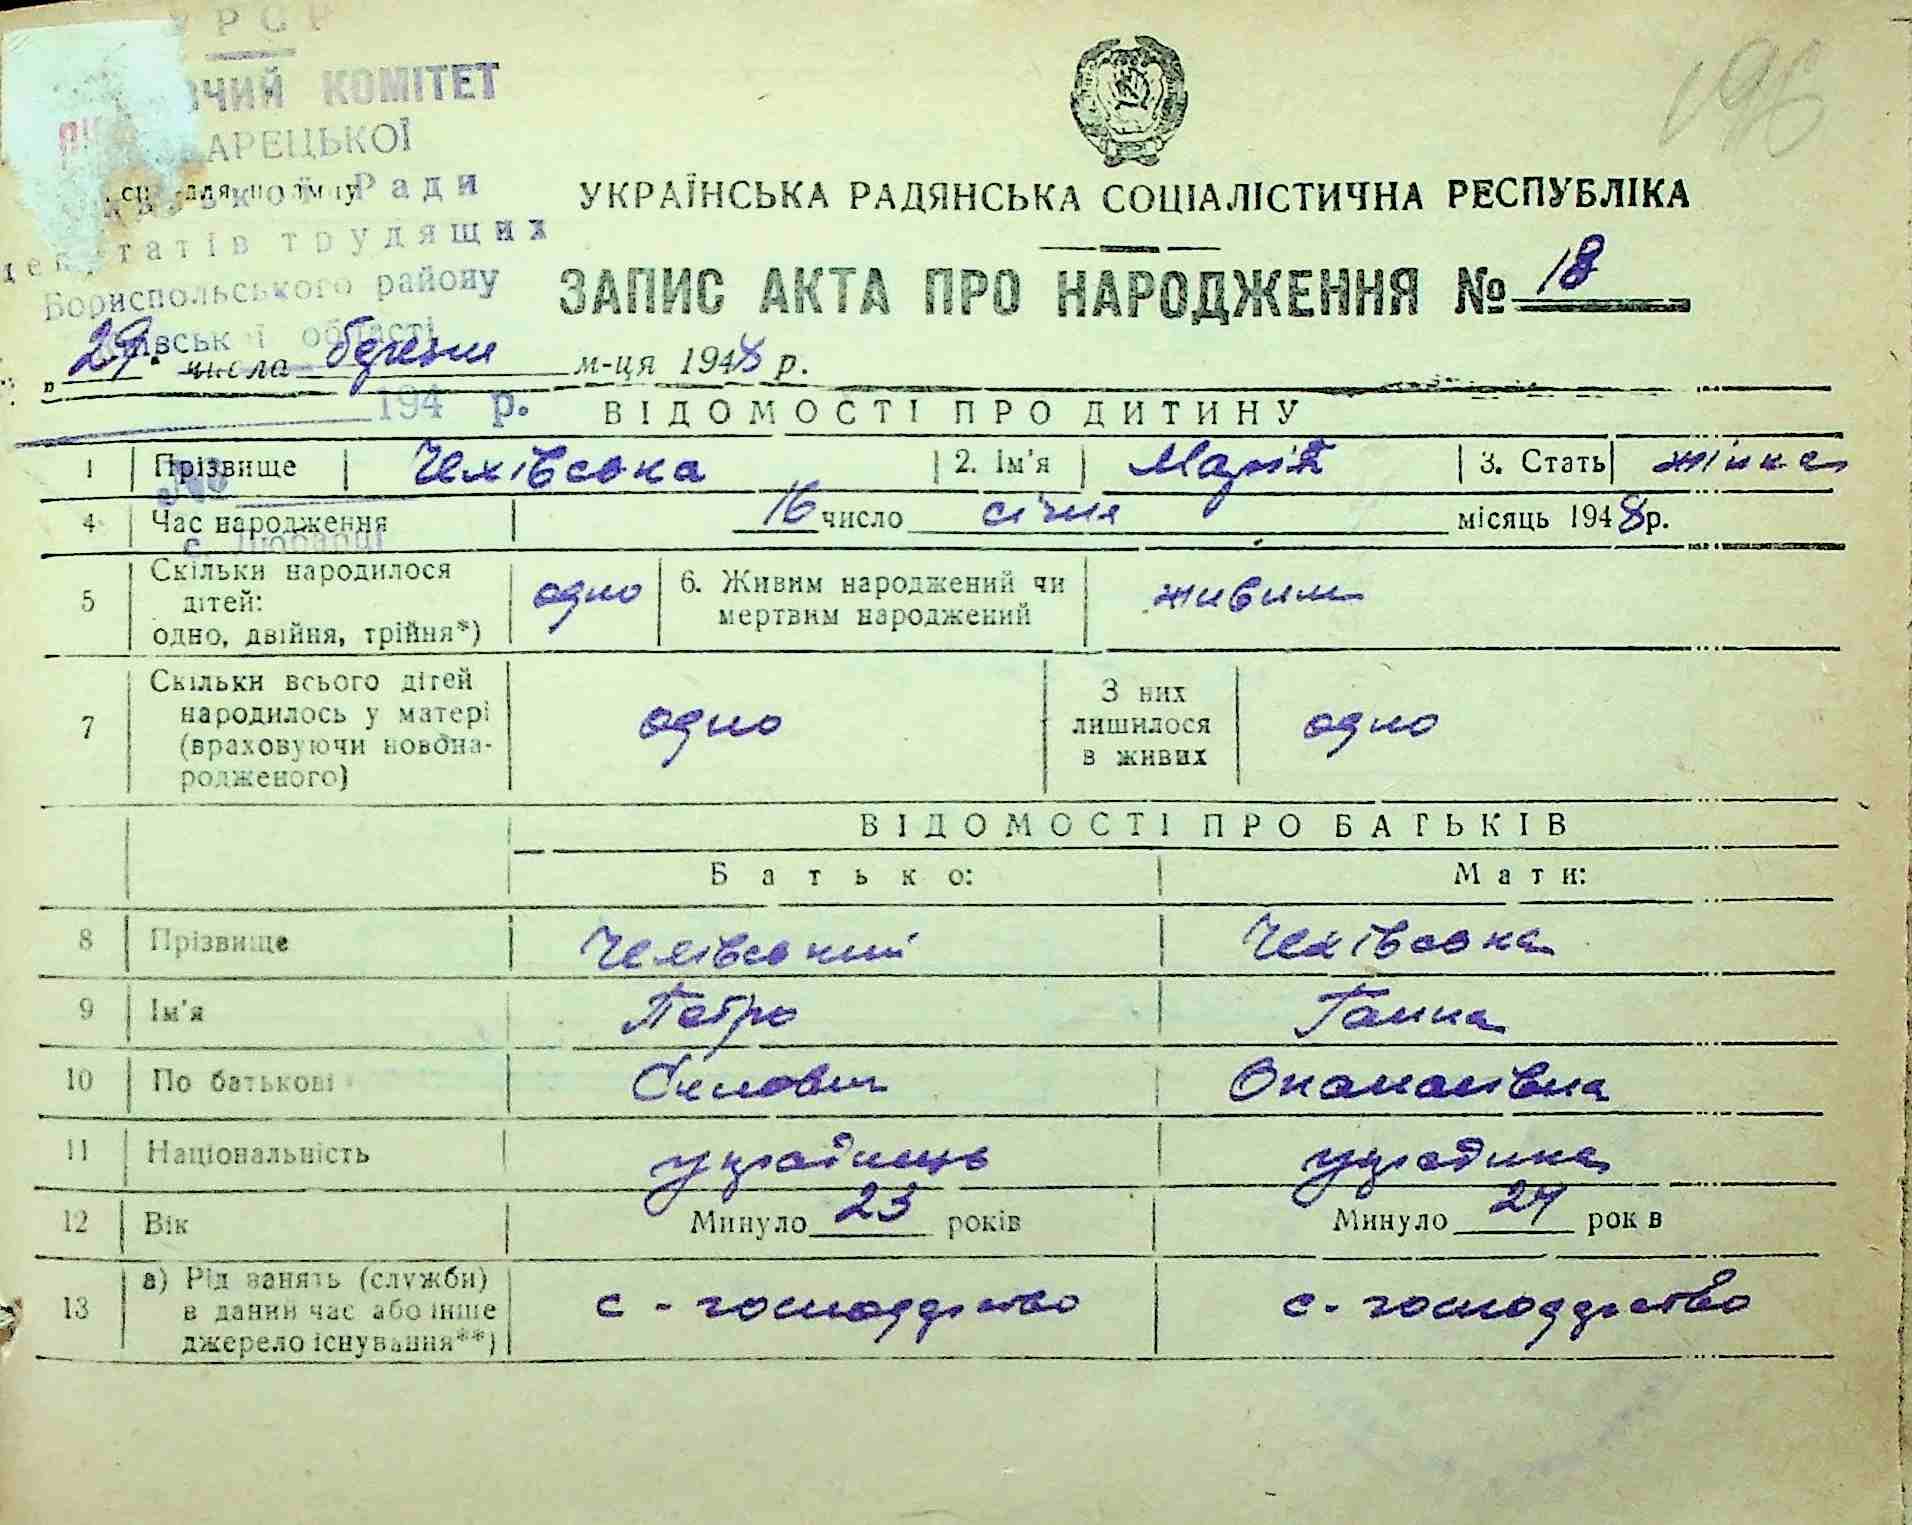 УРСР
196
КОМІТЕТ
УКРАЇНСЬКА РАДЯНСЬКА СОЦІАЛІСТИЧНА РЕСПУБЛІКА
Ради
трудящих
Бориспольського району
області
ЗАПИС АКТА ПРО НАРОДЖЕННЯ № 18
„29" числа березня м-ця 1948 р.
194 р.
ВІДОМОСТІ ПРО ДИТИНУ
1 Прізвище Чехівська 2. Ім'я Марія 3. Стать жінка
№
4 Час народження 16 число січня місяць 1948 р.
с. Любарці
5 Скільки народилося дітей: одно, двійня, трійня*) одно 6. Живим народжений чи мертвим народжений живим
7 Скільки всього дітей народилось у матері (враховуючи новона-родженого) одно З них лишилося в живих одно
ВІДОМОСТІ ПРО БАТЬКІВ
Батько: Мати:
8 Прізвище Чехівський Чехівська
9 Ім'я Петро Ганна
10 По батькові Опанасівна
11 Національність українець українка
12 Вік Минуло 23 років Минуло 24 рок в
13 а) Рід занять (служби) в даний час або інше джерело існування**) с-господарство с.-господарство